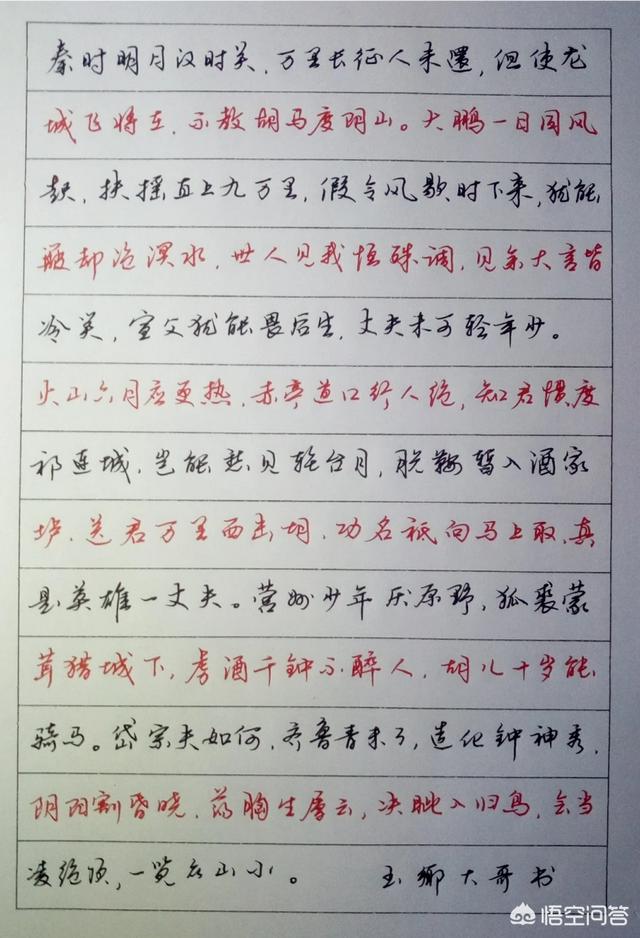 秦时明月汉时关，万里长征人未还，但使龙
城飞将在，不教胡马度阴山。大鹏一日同风
起，扶摇直上九万里，假令风歇时下来，犹能
簸却沧溟水，世人见我恒殊调，见余大言皆
冷笑，宣父犹能畏后生，丈夫未可轻年少。
火山六月应更热，赤亭道口行人绝，知君惯度
祁连城，岂能愁见轮台月，脱鞍暂入酒家
垆，送君万里西击胡，功名祗向马上取，真
是英雄一丈夫。营州少年厌原野，狐裘蒙
茸猎城下，虏酒千钟不醉人，胡儿十岁能
骑马。岱宗夫如何，齐鲁青未了，造化钟神秀，
阴阳割昏晓，荡胸生层云，决眦入归鸟，会当
凌绝顶，一览众山小。 玉乡大哥书
悟空问答